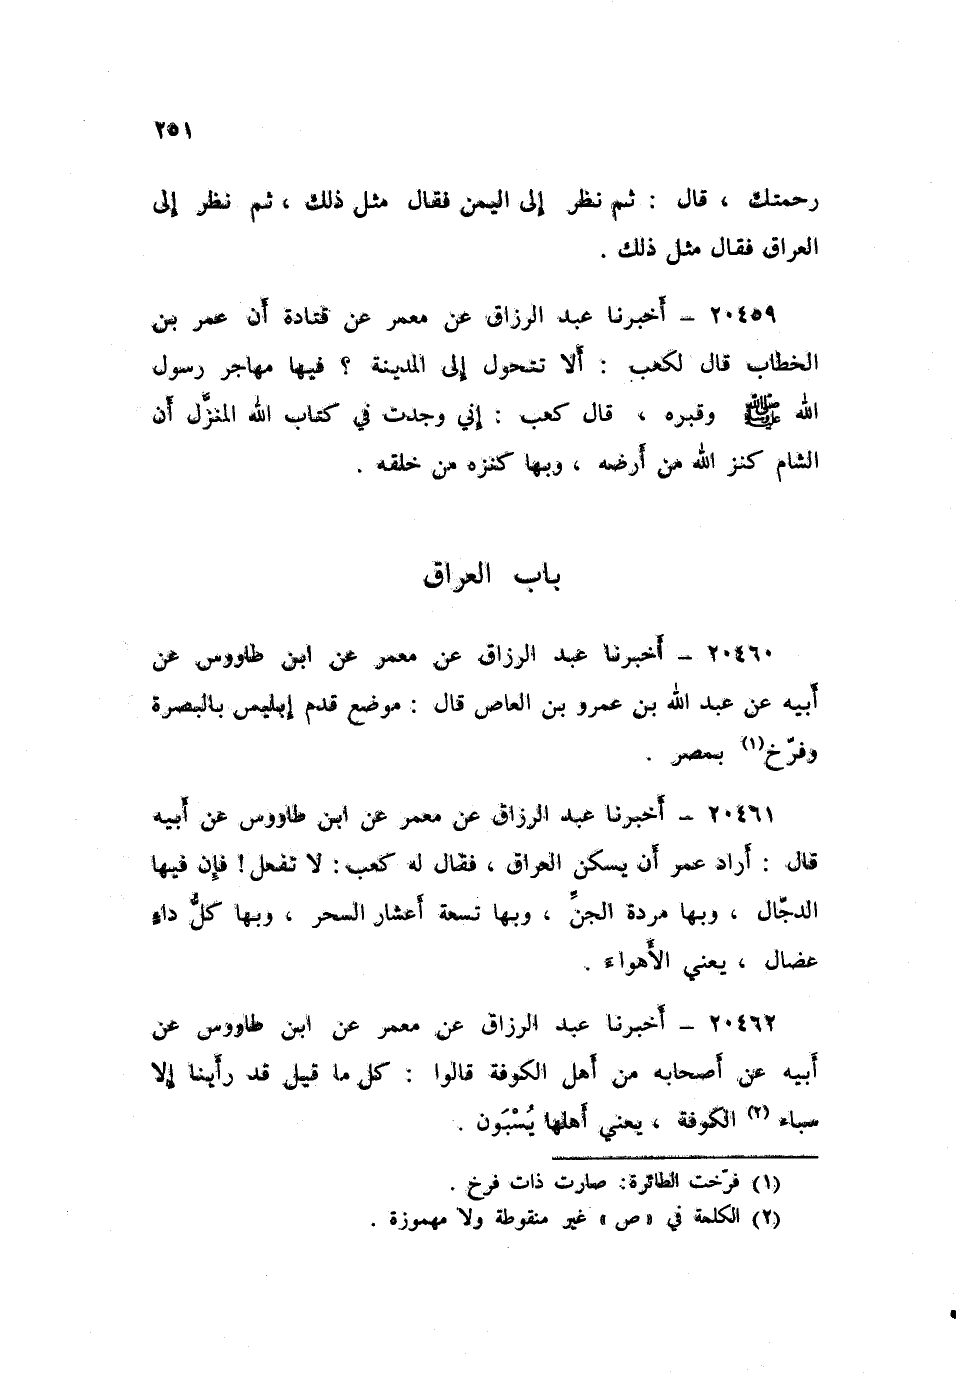 ٢٥١
رحمتك ، قال : ثم نظر إلى اليمن فقال مثل ذلك ، ثم نظر إلى
العراق فقال مثل ذلك .
٢٠٤٥٩ – أخبرنا عبد الرزاق عن معمر عن قتادة أن عمر بن
الخطاب قال لكعب : ألا تتحول إلى المدينة ؟ فيها مهاجر رسول
الله ﷺ وقبره ، قال كعب : إني وجدت في كتاب الله المنزَّل أن
الشام كنز الله من أرضه ، وبها كنزه من خلقه .
باب العراق
٢٠٤٦٠ – أخبرنا عبد الرزاق عن معمر عن ابن طاووس عن
أبيه عن عبد الله بن عمرو بن العاص قال : موضع قدم إبليس بالبصرة
وفرّخ(١) بمصر .
٢٠٤٦١ – أخبرنا عبد الرزاق عن معمر عن ابن طاووس عن أبيه
قال : أراد عمر أن يسكن العراق ، فقال له كعب : لا تفعل! فإن فيها
الدجّال ، وبها مردة الجنِّ ، وبها تسعة أعشار السحر ، وبها كلُّ داءٍ
عضال ، يعني الأهواء .
٢٠٤٦٢ – أخبرنا عبد الرزاق عن معمر عن ابن طاووس عن
أبيه عن أصحابه من أهل الكوفة قالوا : كل ما قيل قد رأينا إلا
سباء (٢) الكوفة ، يعني أهلها يُسْبَون .
(١) فرّخت الطائرة: صارت ذات فرخ .
(٢) الكلمة في «ص» غير منقوطة ولا مهموزة .